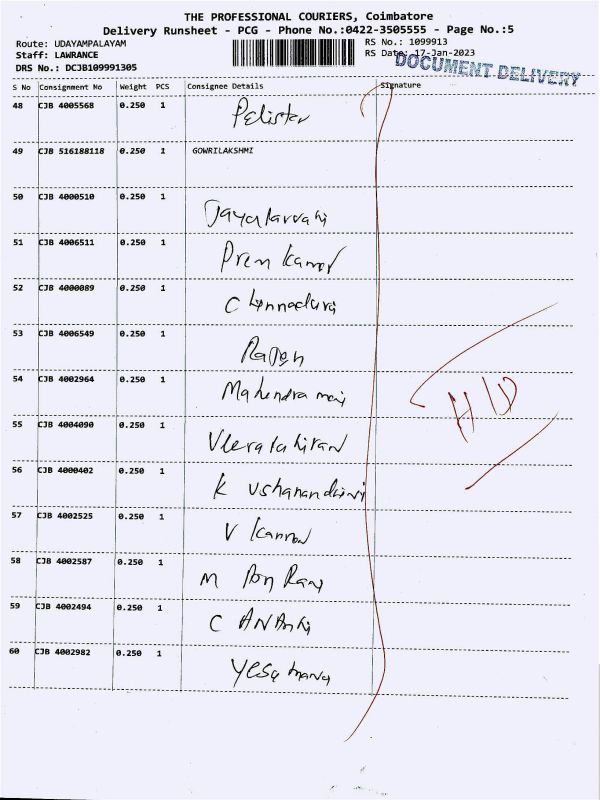 THE PROFESSIONAL COURIERS, Coimbatore
Delivery Runsheet - PCG - Phone No.:0422-3505555 - Page No.:5
Route: UDAYAMPALAYAM RS No.: 1099913
Staff: LAWRANCE RS Date: 17-Jan-2023
DRS No.: DCJB109991305 DOCUMENT DELIVERY
S No Consignment No Weight PCS Consignee Details Signature
48 CJB 4005568 0.250 1
49 CJB 516188118 0.250 1 GOWRILAKSHMI
50 CJB 4000510 0.250 1
51 CJB 4006511 0.250 1 Prem Kumar
52 CJB 4000089 0.250 1 Chinnadurai
53 CJB 4006549 0.250 1 Rajan
54 CJB 4002964 0.250 1 Mahendra mani
55 CJB 4004090 0.250 1
56 CJB 4000402 0.250 1 K Ushanandhini
57 CJB 4002525 0.250 1 V Kannan
58 CJB 4002587 0.250 1 M Pon Raj
59 CJB 4002494 0.250 1 C
60 CJB 4002982 0.250 1